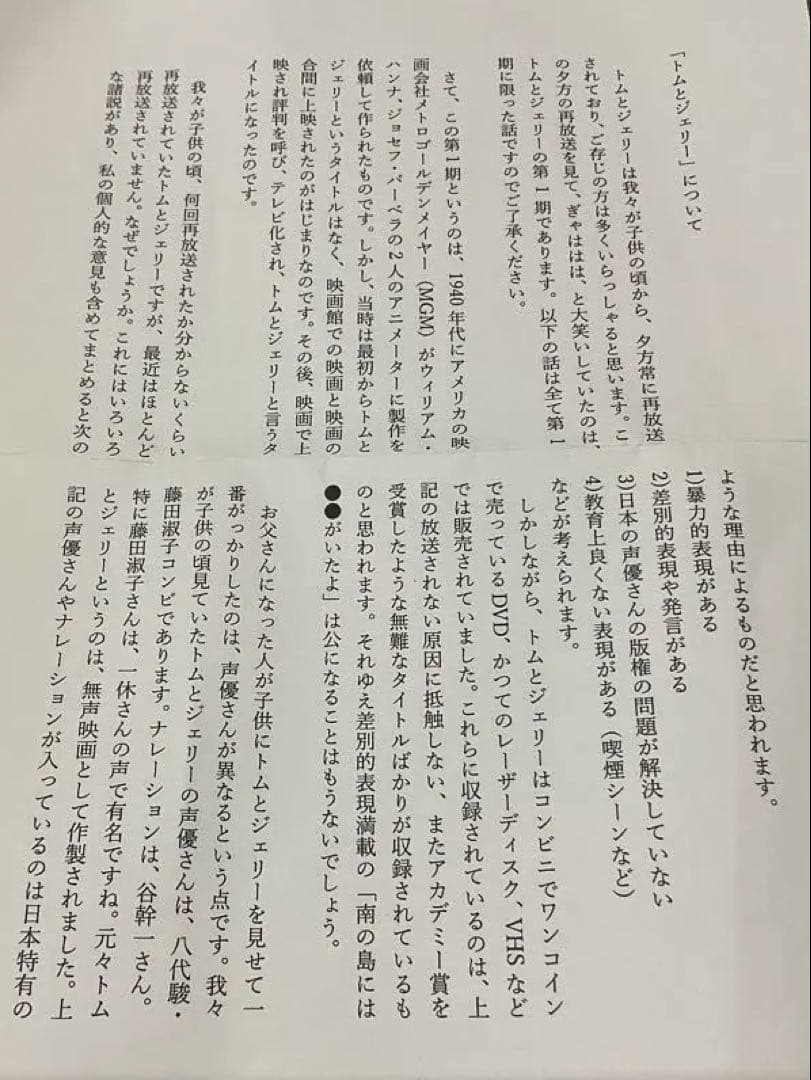 「トムとジェリー」について
トムとジェリーは我々が子供の頃から、夕方常に再放送
されており、ご存じの方は多くいらっしゃると思います。こ
の夕方の再放送を見て、ぎゃははは、と大笑いしていたのは、
トムとジェリーの第1期であります。以下の話は全て第1
期に限った話ですのでご了承ください。
さて、この第1期というのは、1940年代にアメリカの映
画会社メトロゴールデンメイヤー（MGM）がウィリアム・
ハンナ、ジョセフ・バーベラの2人のアニメーターに製作を
依頼して作られたものです。しかし、当時は最初からトムと
ジェリーというタイトルはなく、映画館での映画と映画の
合間に上映されたのがはじまりなのです。その後、映画で上
映され評判を呼び、テレビ化され、トムとジェリーと言うタ
イトルになったのです。
我々が子供の頃、何回再放送されたか分からないくらい
再放送されていたトムとジェリーですが、最近はほとんど
再放送されていません。なぜでしょうか。これにはいろいろ
な諸説があり、私の個人的な意見も含めてまとめると次の
ような理由によるものだと思われます。
1)暴力的表現がある
2)差別的表現や発言がある
3)日本の声優さんの版権の問題が解決していない
4)教育上良くない表現がある（喫煙シーンなど）
などが考えられます。
しかしながら、トムとジェリーはコンビニでワンコイン
で売っているDVD、かつてのレーザーディスク、VHSなど
では販売されていました。これらに収録されているのは、上
記の放送されない原因に抵触しない、またアカデミー賞を
受賞したような無難なタイトルばかりが収録されているも
のと思われます。それゆえ差別的表現満載の「南の島には
●●がいたよ」は公になることはもうないでしょう。
お父さんになった人が子供にトムとジェリーを見せて一
番がっかりしたのは、声優さんが異なるという点です。我々
が子供の頃見ていたトムとジェリーの声優さんは、八代駿・
藤田淑子コンビであります。ナレーションは、谷幹一さん。
特に藤田淑子さんは、一休さんの声で有名ですね。元々トム
とジェリーというのは、無声映画として作製されました。上
記の声優さんやナレーションが入っているのは日本特有の